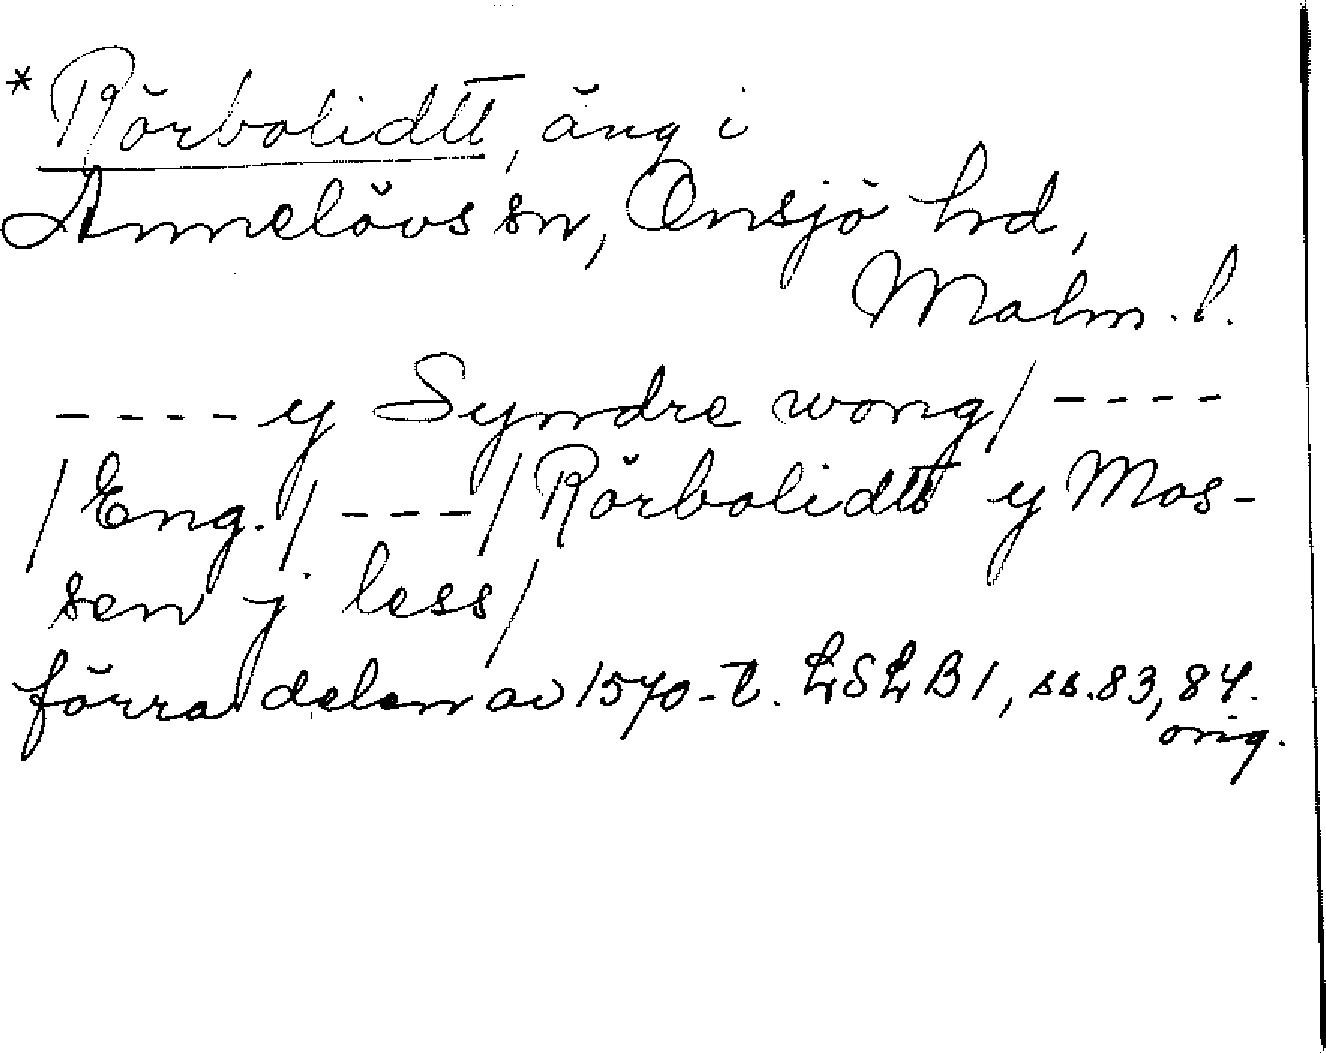 * Rörbolidtt, äng i
Annelövs sn, Onsjö hd,
Malm. l.
---- y Syndre wong/ ----
/Eng./ ---/Rörbolidtt y Mos-
sen j less/
förra delen av 1570-t. LSLB1, ss. 83, 84.
orig.